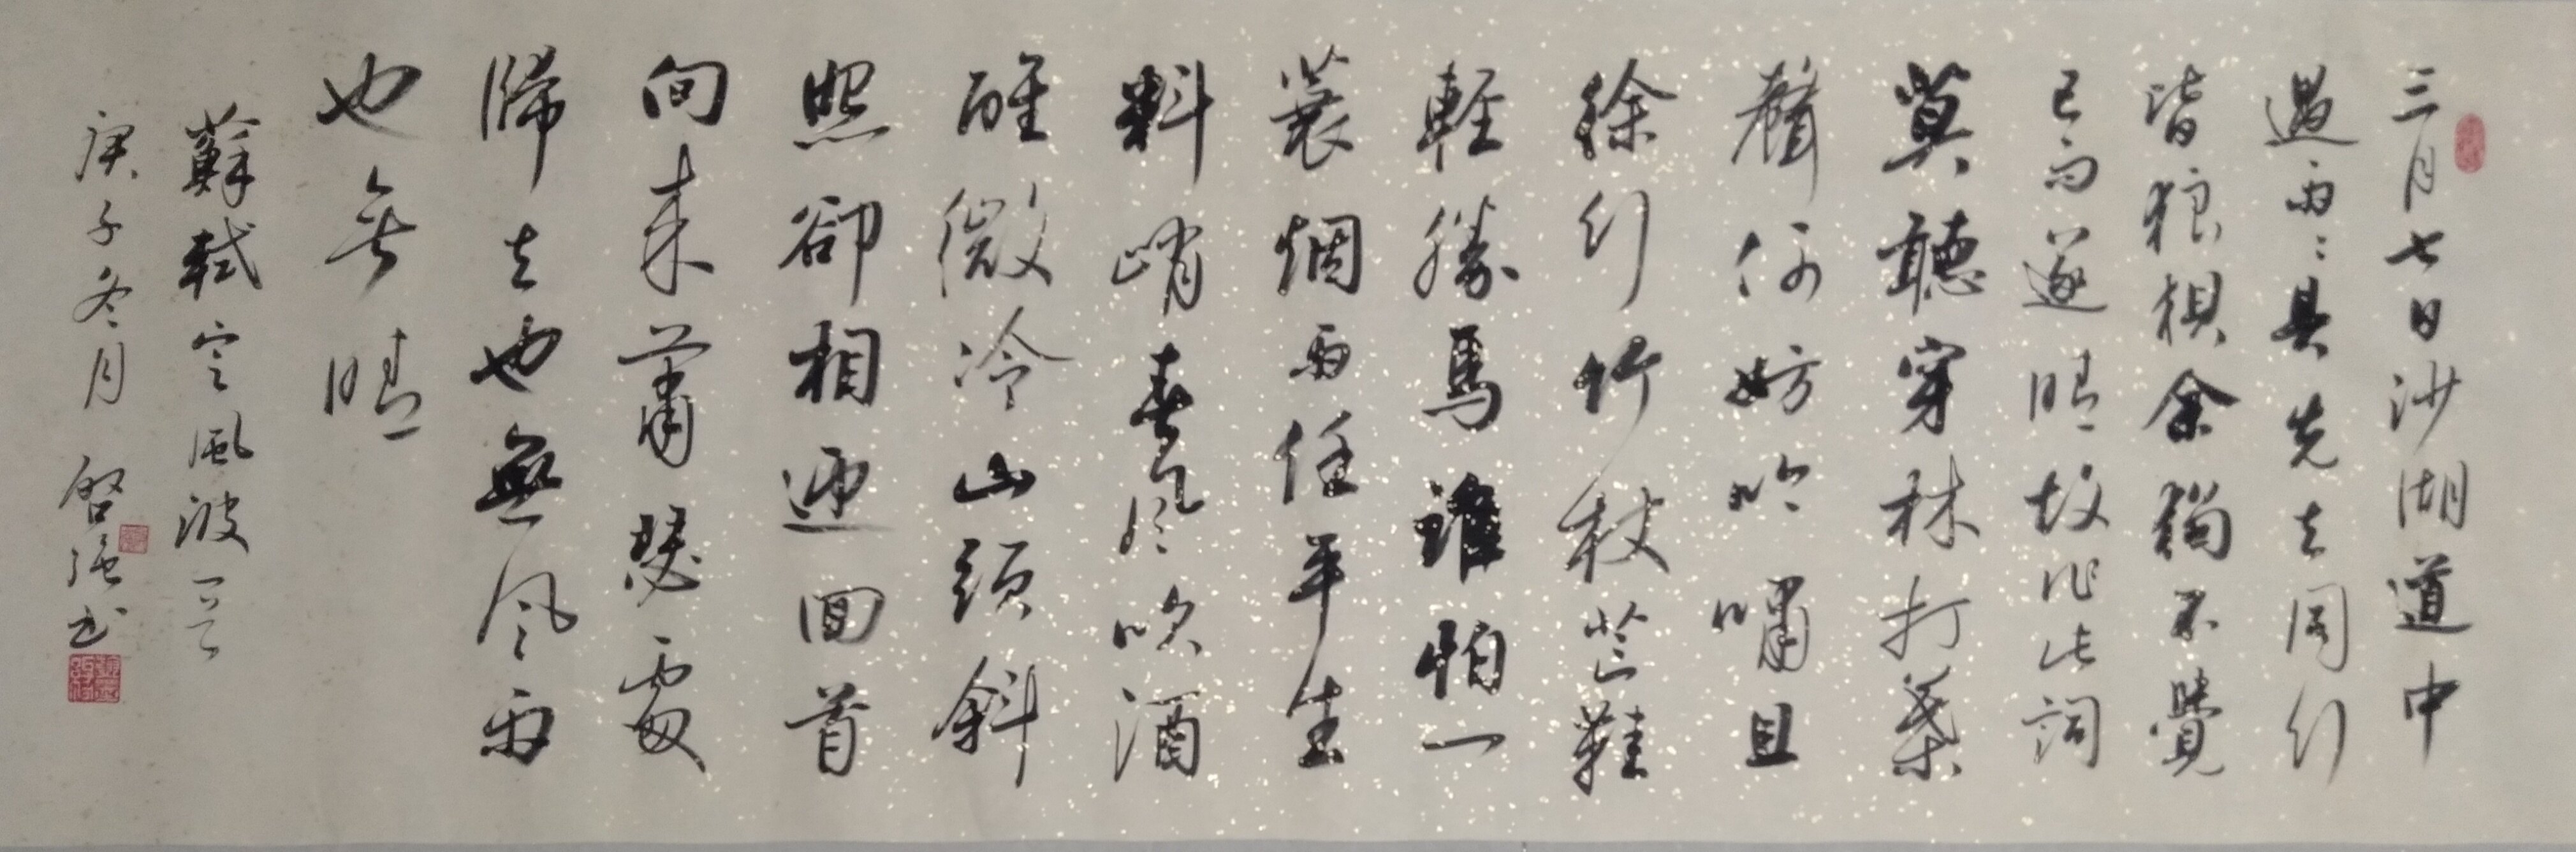 三月七日沙湖道中
遇雨雨具先去同行
皆狼狽余獨不覺
已而遂晴故作此詞
莫聽穿林打葉
聲何妨吟嘯且
徐行竹杖芒鞋
輕勝馬誰怕一
蓑烟雨任平生
料峭春风吹酒
醒微冷山頭斜
照卻相迎回首
向来蕭瑟處
歸去也無风雨
也无晴
蘇軾定風波一首
庚子冬月啓强书